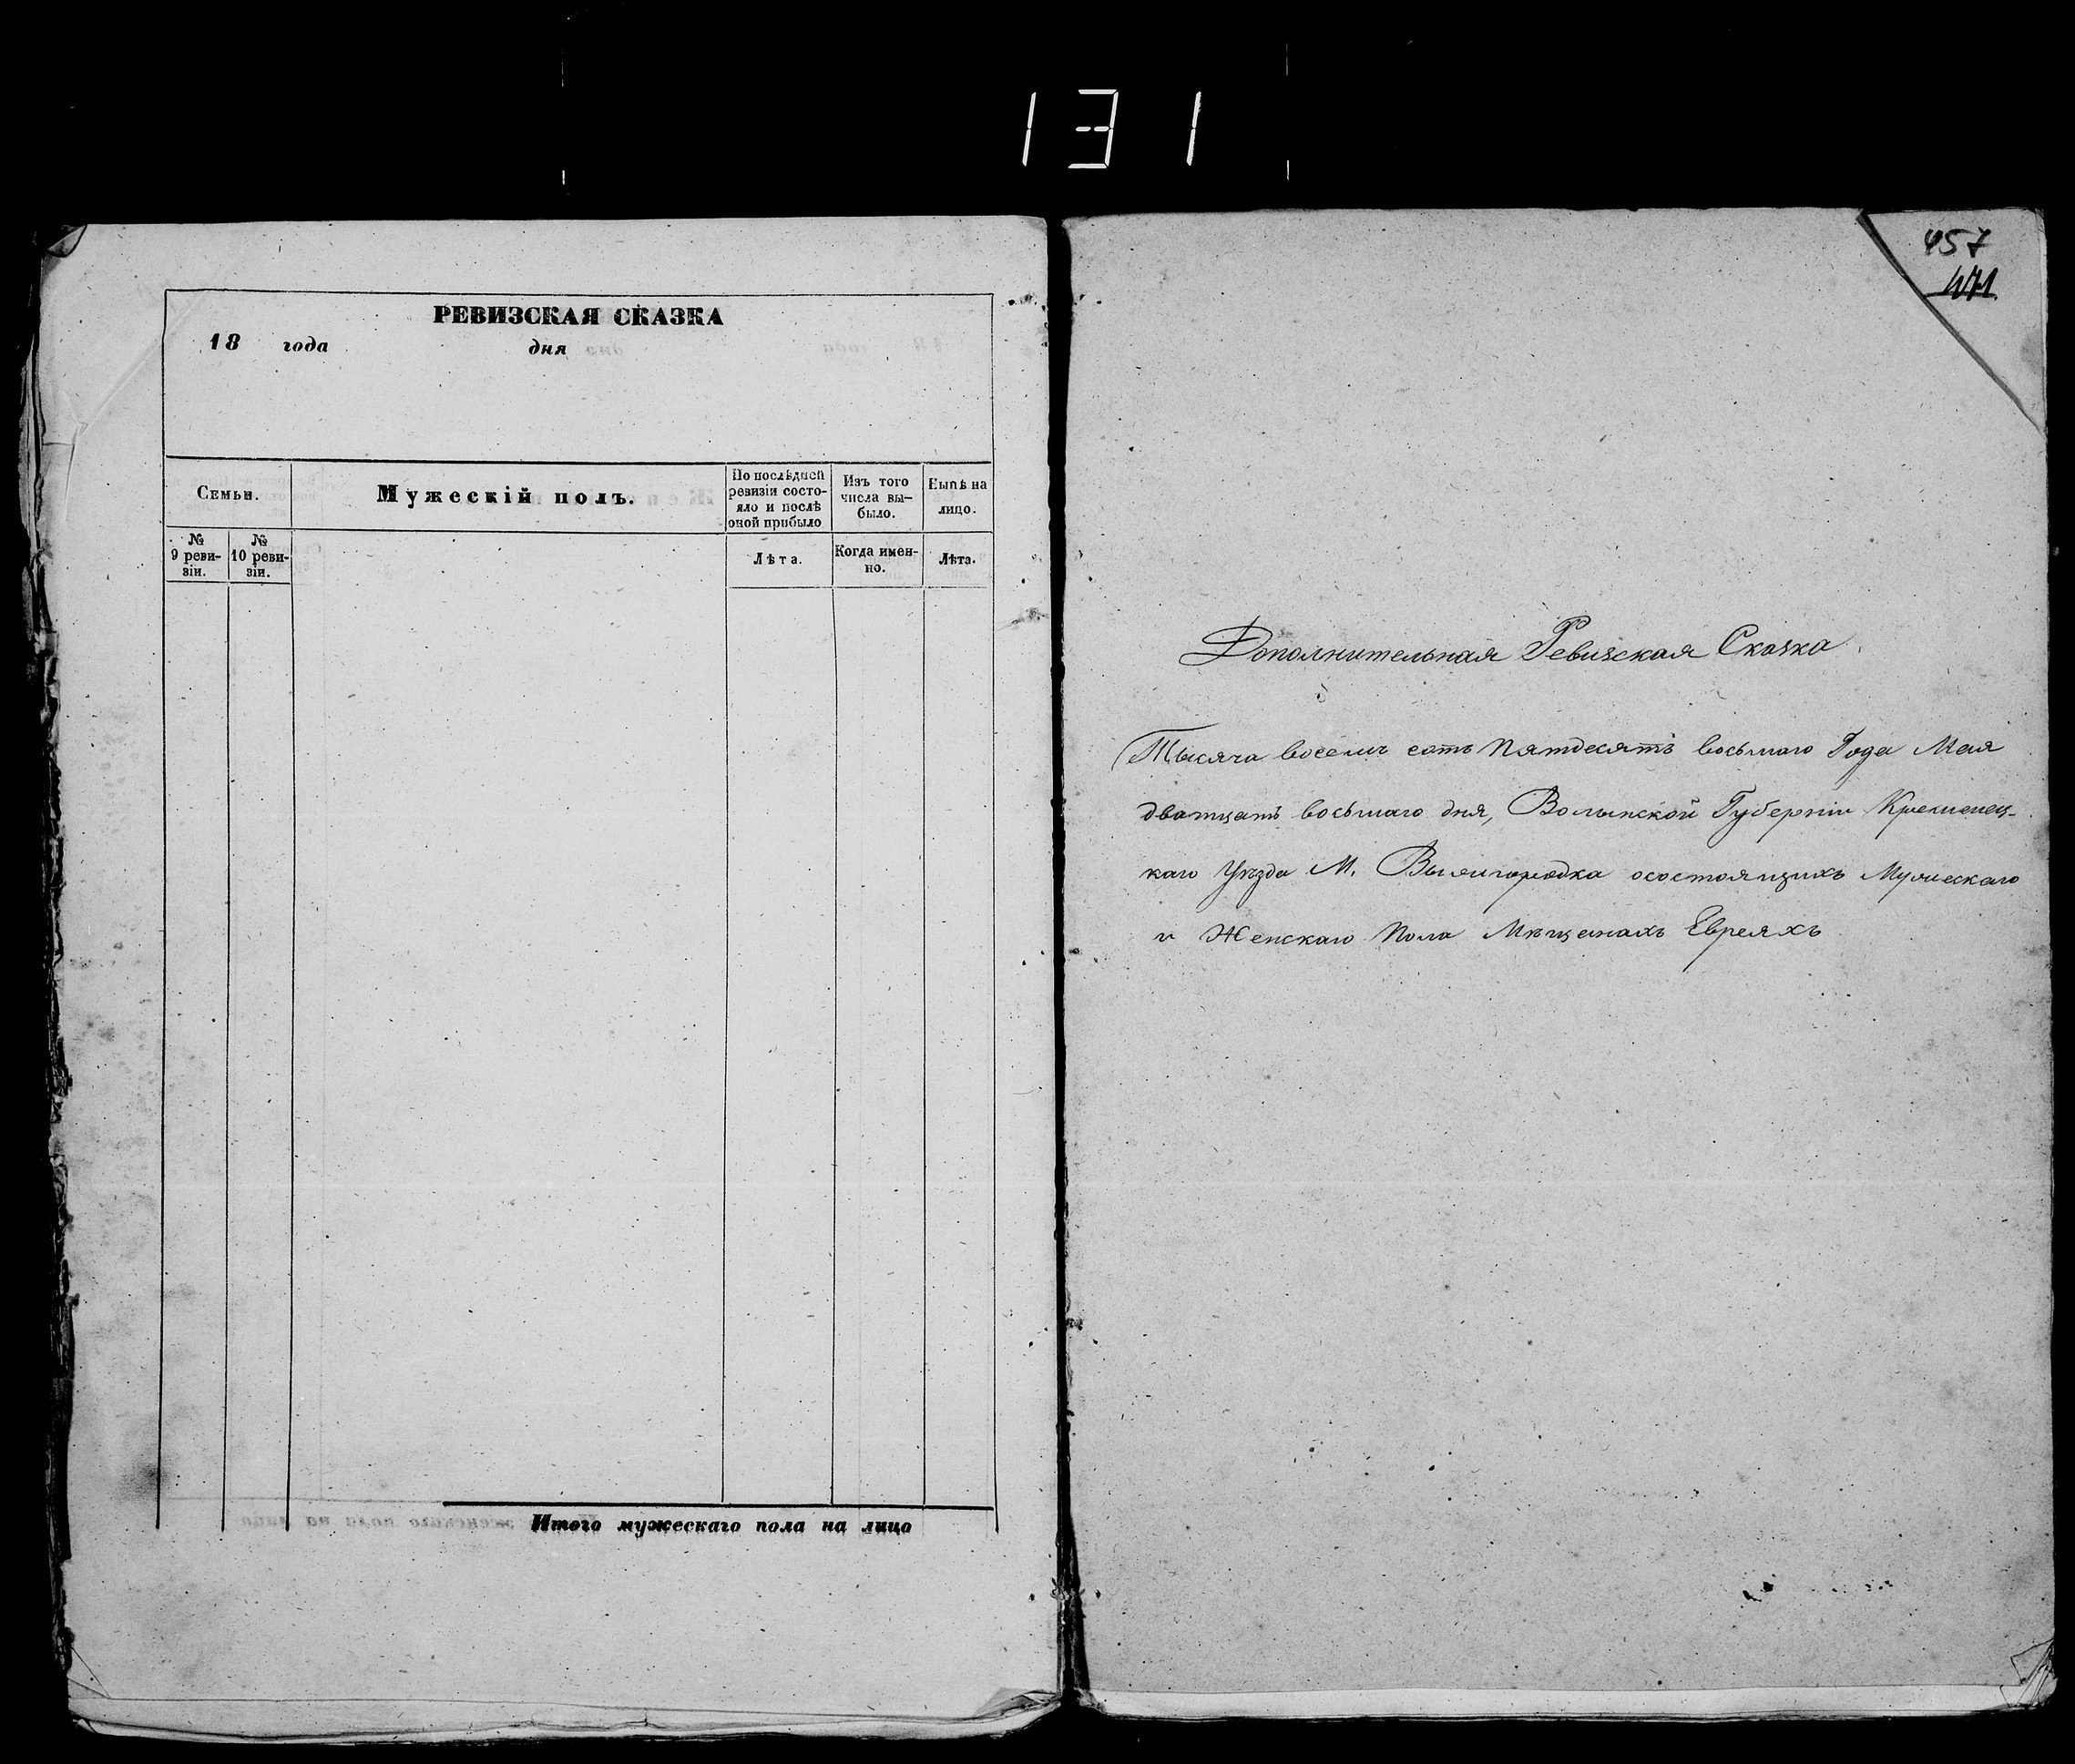 131
РЕВИЗСКАЯ СКАЗКА
18 года дня
Семьи.
Мужескій полъ.
По послѣдней ревизіи состо-
яло и послѣ
оной прибыло
Изъ того
числа вы-
было.
Нынѣ на
лицо.
№
9 реви-
зіи.
№
10 реви-
зіи.
Лѣта.
Когда имен-
но.
Лѣта.
Итого мужескаго пола на лицо
457
471
Дополнительная Ревизская Сказка
Тысяча восемь сотъ Пятдесятъ восьмаго Года Мая
дватцать восьмаго дня, Волынской Губерніи Кременец-
каго Уѣзда М. Вышгородка осостоящихъ Мужескаго
и Женскаго Пола Мѣщанахъ Евреяхъ